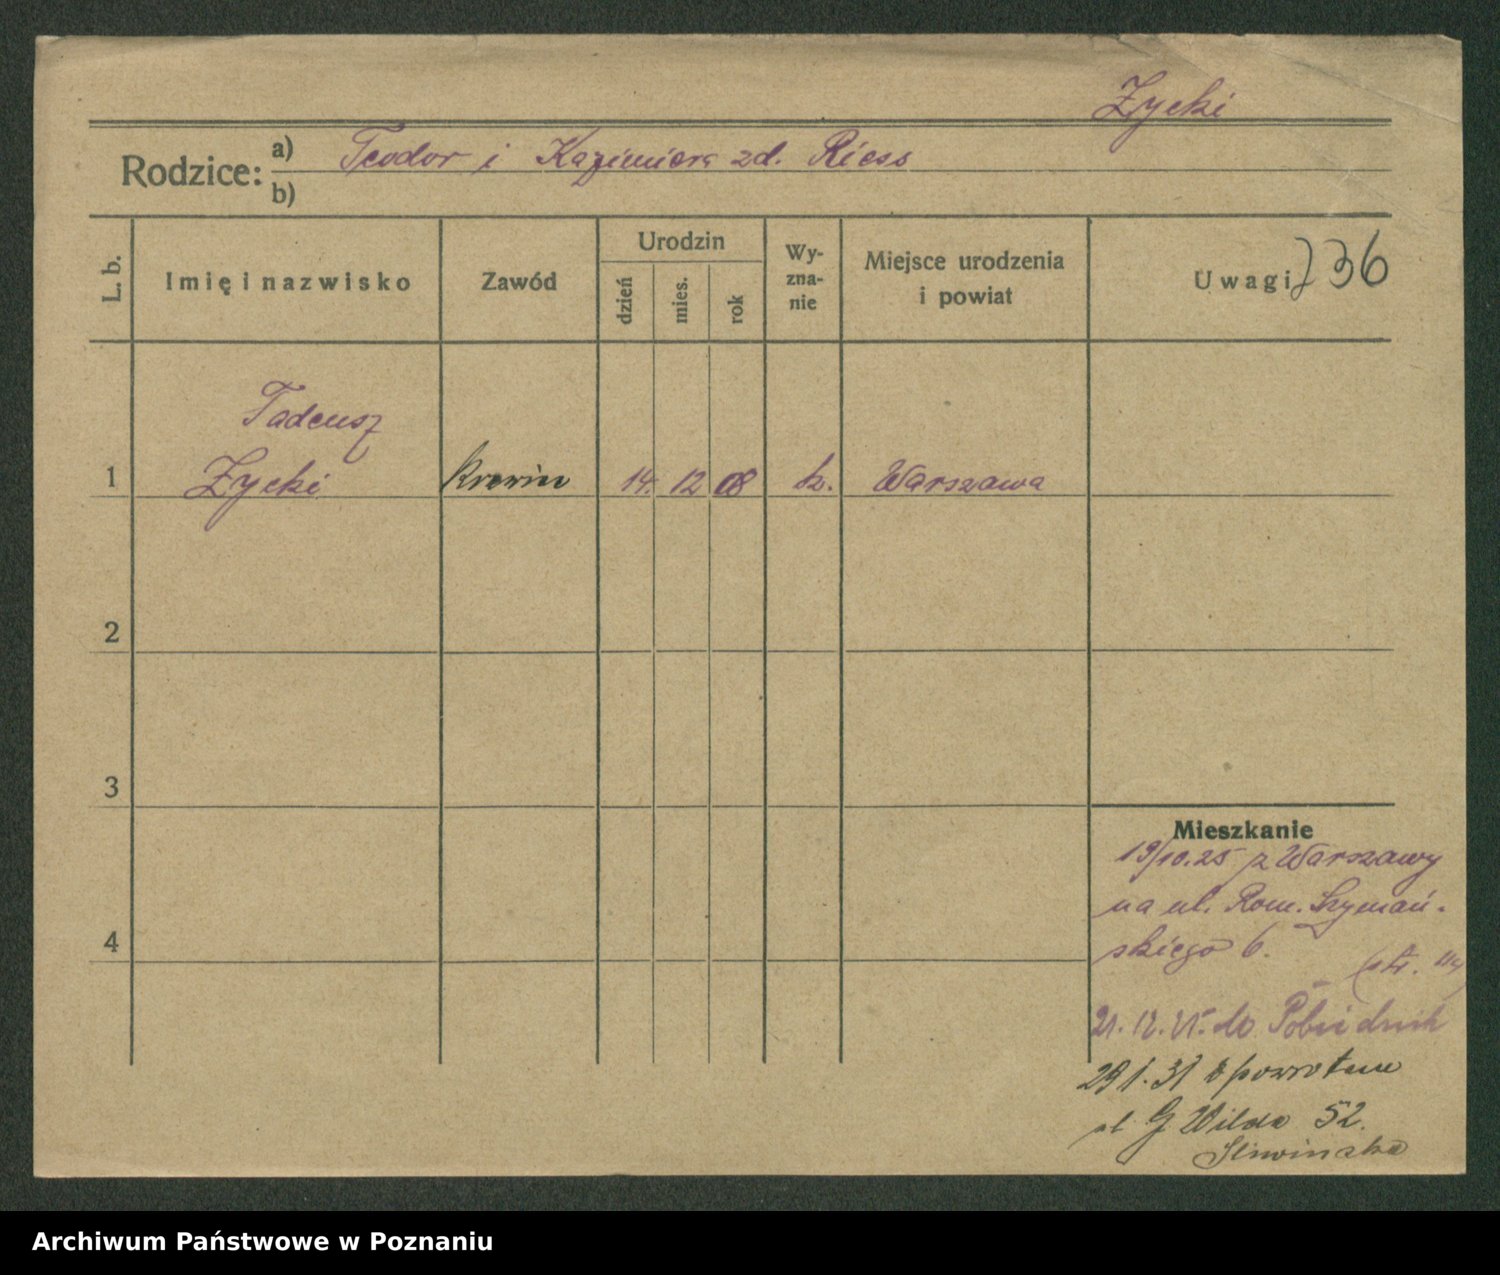 Zycki
Rodzice: a) Teodor i Kazimiera zd. Riess
b)
L. b. Imię i nazwisko Zawód Urodzin dzień mies. rok Wy-zna-nie Miejsce urodzenia i powiat Uwagi 736
Tadeusz
1 Zycki 14. 12 08 k. Warszawa
2
3
Mieszkanie
19/10.25 z Warszawy
na ul. Rom. Szymań-
4 skiego 6.
(str.
21. 12. 25. do
29 1. 31 z powrotem
ul. G Wilda 52.
Śliwińska
Archiwum Państwowe w Poznaniu